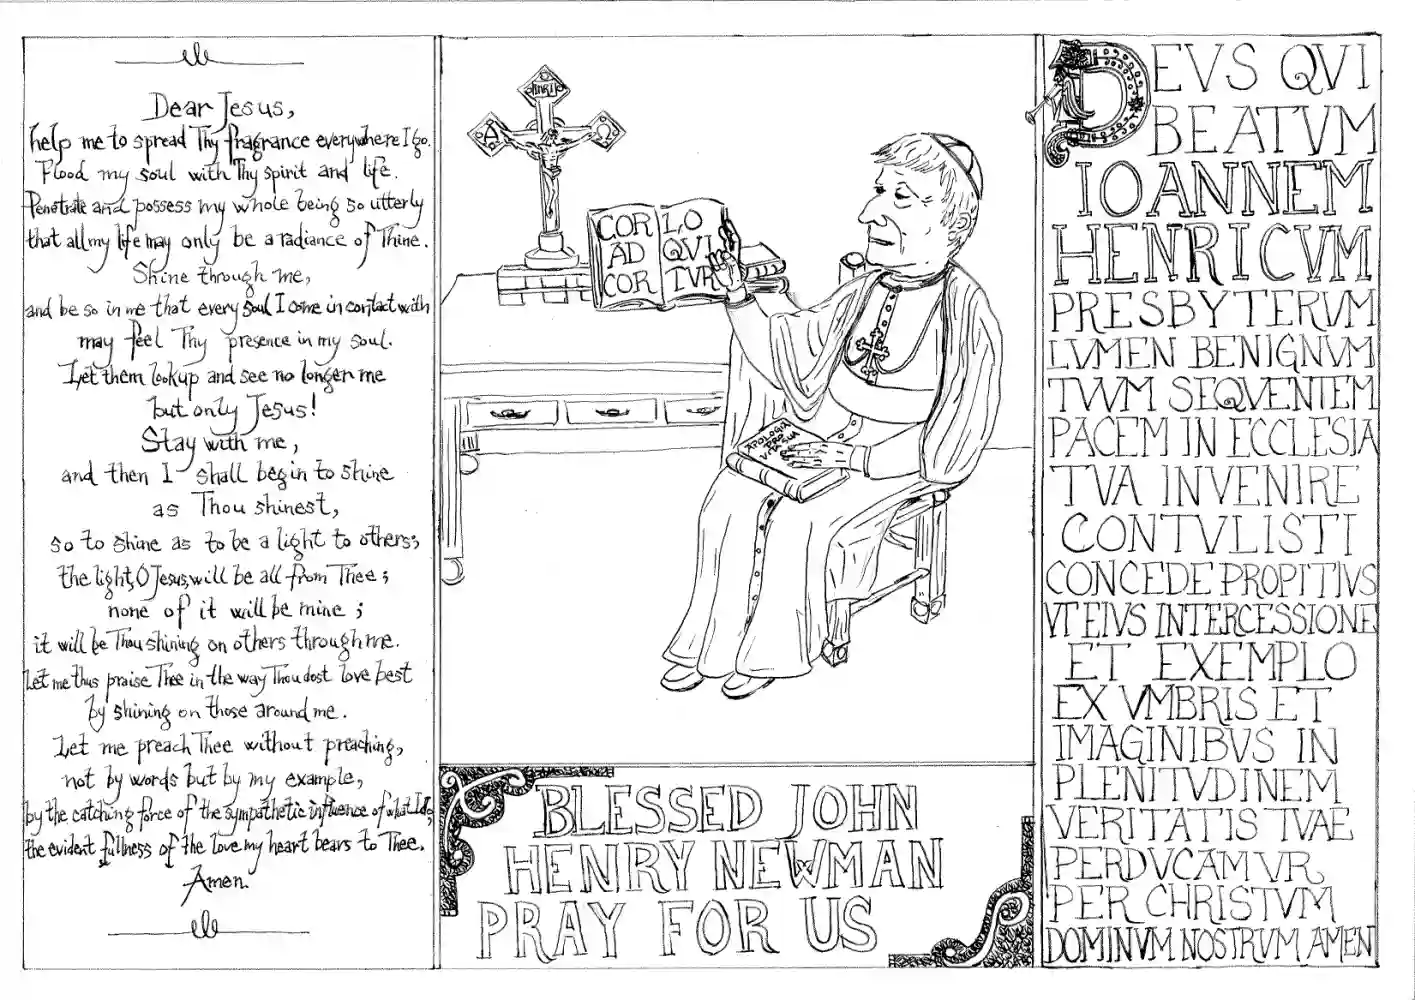 Dear Jesus,
help me to spread Thy fragrance everywhere I go.
Flood my soul with Thy spirit and life.
Penetrate and possess my whole being so utterly
that all my life may only be a radiance of Thine.
Shine through me,
and be so in me that every soul I come in contact with
may feel Thy presence in my soul.
Let them look up and see no longer me
but only Jesus!
Stay with me,
and then I shall begin to shine
as Thou shinest,
so to shine as to be a light to others;
the light, O Jesus, will be all from Thee;
none of it will be mine;
it will be Thou shining on others through me.
Let me thus praise Thee in the way Thou dost love best
by shining on those around me.
Let me preach Thee without preaching,
not by words but by my example,
by the catching force of the sympathetic influence of what I do,
the evident fullness of the love my heart bears to Thee.
Amen.
INRI
A Ω
COR
AD
COR
LO
QVI
TVR
APOLOGIA
PRO
VITA SUA
BLESSED JOHN
HENRY NEWMAN
PRAY FOR US
DEVS QVI
BEATVM
IOANNEM
HENRICVM
PRESBYTERVM
LVMEN BENIGNVM
TVVM SEQVENTEM
PACEM IN ECCLESIA
TVA INVENIRE
CONTVLISTI
CONCEDE PROPITIVS
VT EIVS INTERCESSIONE
ET EXEMPLO
EX VMBRIS ET
IMAGINIBVS IN
PLENITVDINEM
VERITATIS TVAE
PERDVCAMVR
PER CHRISTVM
DOMINVM NOSTRVM AMEN